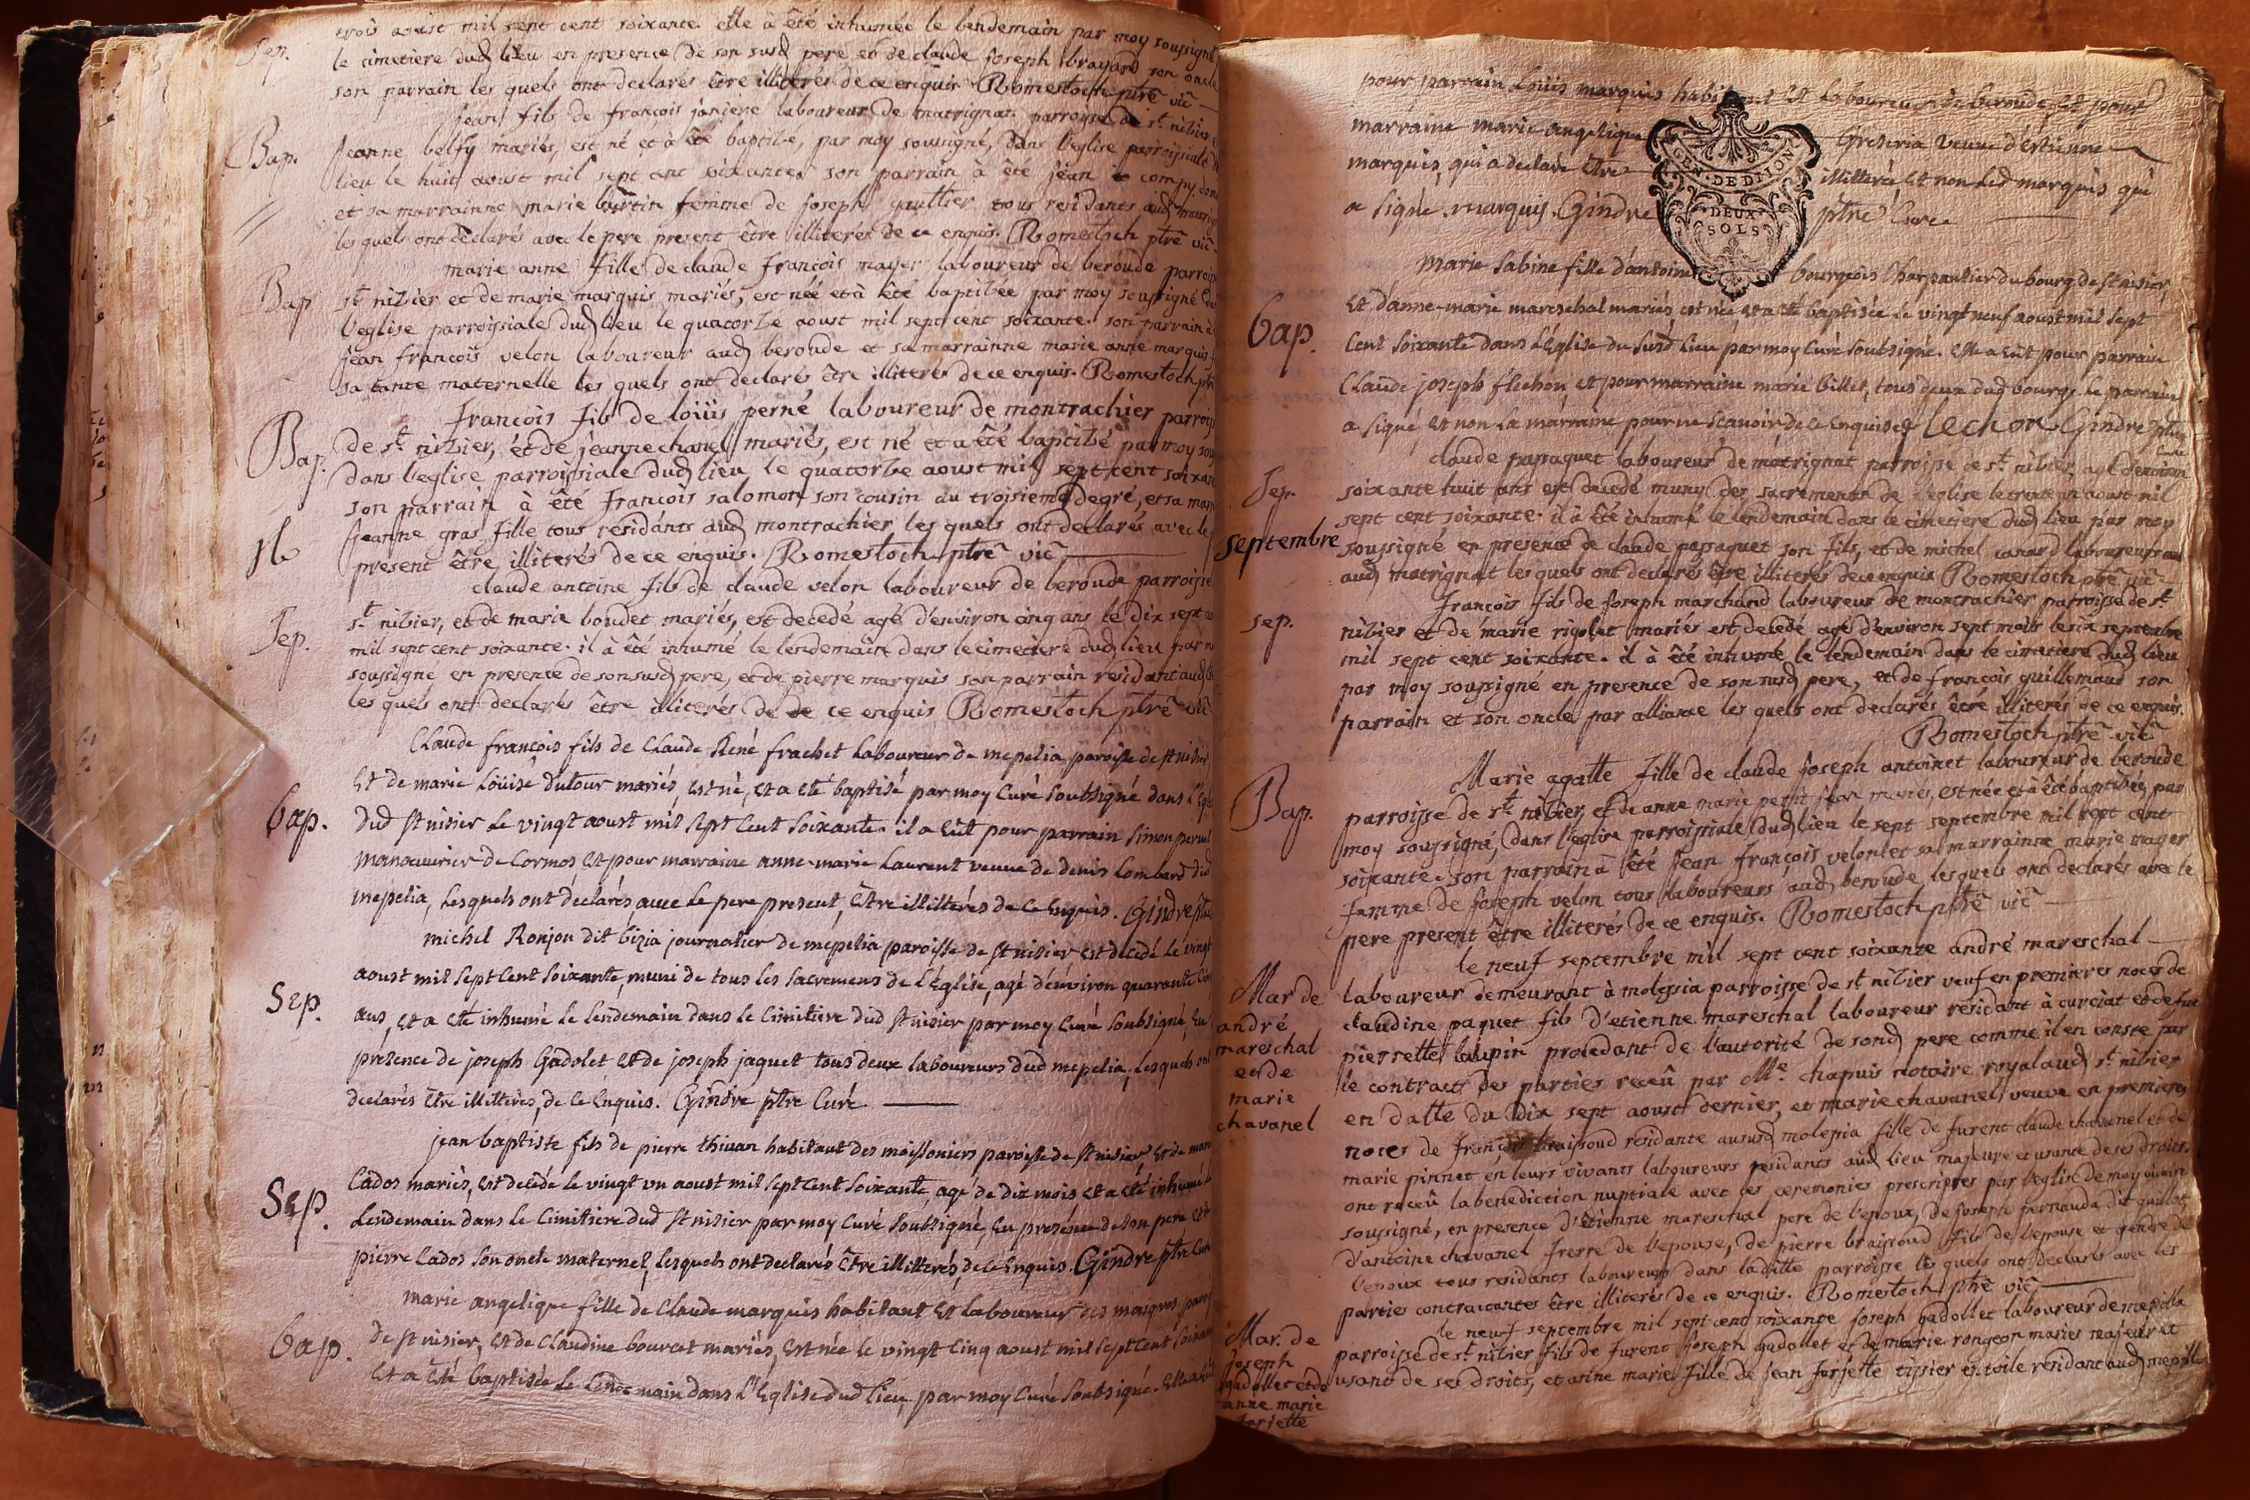 Sep.
trois aoust mil sept cent soixante. elle à êté inhumée le lendemain par moy soussigné
le cimetiere dud lieu en presence de son susd pere et de claude joseph brayard son oncle
son parrain les quels ont declarés être illiterés de ce enquis Romestoch ptre vic
jean fils de françois janiere laboureur de matrignat parroisse de st nibier
Bap.
jeanne belfy mariés, est né et à êté baptisé, par moy sousigné, dans l'eglise parroissiale
lieu le huit aoust mil sept cent soixante son parrain à êté jean
et sa marrainne marie burtin femme de joseph gaultier tous residants aud
les quels ont declarés avec le pere present être illiterés de ce enquis. Romestoch ptre vic
marie anne fille de claude françois mayer laboureur de beroude parroisse
Bap
st nibier et de marie marquis mariés, est née et à êté baptisée par moy soussigné
l'eglise parroissiale dud lieu le quatorze aoust mil sept cent soixante. son parrain à
jean françois velon laboureur aud beroude et sa marrainne marie anne marquis
sa tante maternelle les quels ont declarés être illiterés de ce enquis. Romestoch ptre
françois fils de loüis perné laboureur de montrachier parroisse
Bap.
de st nibier, et de jeanne chanel mariés, est né et a êté baptisé par moy
dans l'eglise parroissiale dud lieu le quatorze aoust mil sept cent soixante
son parrain à êté françois salomon son cousin au troisieme degré, et sa
jeanne gras fille tous residants aud montrachier les quels ont declarés avec le
present être illiterés de ce enquis. Romestoch ptre vic
claude antoine fils de claude velon laboureur de beroude parroisse
Sep.
st nibier, et de marie boudet mariés, est decedé agé d'environ cinq ans le dix sept
mil sept cent soixante. il à êté inhumé le lendemain dans le cimetiere dud lieu par
soussigné en presence de son susd pere, et de pierre marquis son parrain residant aud
les quels ont declarés être illiterés de de ce enquis Romestoch ptre vic
Claude françois fils de Claude René frachet Laboureur de mepelia, paroisse de st nisier
Et de marie Loüise dutour mariés, est né, et a eté baptisé par moy Curé soubsigné dans l'Eglise
bap.
dud st nisier Le vingt aoust mil sept Cent soixante. il a eüt pour parrain simon
manouvrier de Cormos, et pour marraine anne-marie Laurent veuve de denis Lombard dud
mepelia, Lesquels ont declarés, avec le pere present, être illitterés de ce Enquis. Gindre ptre
michel Ronjon dit bizia journalier de mepelia paroisse de st nisier est decedé le vingt
aoust mil sept Cent soixante, muni de tous les sacremens de l'Église, agé d'environ quarante
Sep.
ans, et a eté inhumé le Lendemain dans le Cimitiere dud st nisier par moy Curé soubsigné, En
présence de joseph Gadolet et de joseph jaquet tous deux laboureurs dud mepelia, Lesquels ont
declarés être illitterés, de ce Enquis. Gindre ptre Curé
jean baptiste fils de pierre thivan habitant des moissoniers paroisse de st nisier et de
Cados mariés, est decédé le vingt un aoust mil sept Cent soixante, agé de dix mois et a eté inhumé
Sep.
Lendemain dans le Cimitiere dud st nisier par moy Curé soubsigné, En presence de son pere et de
pierre Cados son oncle maternel, lesquels ont declarés être illitterés, de ce Enquis. Gindre ptre Curé
marie angelique fille de Claude marquis habitant et laboureur des
bap.
de st nisier, et de Claudine bourcet mariés, est née le vingt Cinq aoust mil sept Cent soixante
et a été baptisée le lendemain dans l'Eglise dud lieu, par moy Curé soubsigné.
pour parrain Loüis marquis habitant et laboureur de beroude, et pour
marraine marie angelique Greseria veuve d'estienne
marquis, qui a declaré être illitterée et non led marquis qui
a signé. marquis. Gindre ptre Curé
GEN. DE DIJON
DEUX
SOLS
marie sabine fille d'antoine bourgeois Charpantier du bourg de st nisier,
Et d'anne-marie mareschal mariés, est née, et a eté baptisée le vingt neuf aoust mil sept
bap.
Cent soixante dans l'Église du susd lieu par moy Curé soubsigné. Elle a eüt pour parrain
Claude joseph flechon, et pour marraine marie billet, tous deux dud bourg. Le parrain
a signé et non la marraine pour ne scavoir de ce Enquise lechon Gindre ptre
Curé
claude papaquet laboureur de matrignat parroisse de st nibier, agé d'environ
Sep.
soixante huit ans est decedé muny des sacrements de l'eglise le trente un aoust mil
sept cent soixante. il à êté inhumé le lendemain dans le cimetiere dud lieu par moy
septembre
soussigné en presence de claude papaquet son fils, et de michel canard laboureur
aud matrignat les quels ont declarés être illiterés de ce enquis Romestoch ptre vic
françois fils de joseph marchand laboureur de montrachier parroisse de st
sep.
nibier et de marie rigolet mariés est decedé agé d'environ sept mois le six septembre
mil sept cent soixante. il à êté inhumé le lendemain dans le cimetiere dud lieu
par moy soussigné en presence de son susd pere, et de françois guillemaud son
parrain et son oncle par alliance les quels ont declarés être illiterés de ce enquis.
Romestoch ptre vic
Marie agatte fille de claude joseph antoinet laboureur de beroude
Bap.
parroisse de st nibier, et de anne marie petit jean mariés, est née et à êté baptisée, par
moy soussigné, dans l'eglise parroissiale dud lieu le sept septembre mil sept cent
soixante. son parrain à êté jean françois velon et sa marrainne marie mayer
femme de joseph velon tous laboureurs aud beroude, les quels ont declarés avec le
pere present être illiterés de ce enquis. Romestoch ptre vic
le neuf septembre mil sept cent soixante andré mareschal
Mar de
andré
mareschal
et de
marie
chavanel
laboureur demeurant à molessia parroisse de st nibier veuf en premieres noces de
claudine paquet fils d'etienne mareschal laboureur residant à curciat et de fue
pierrette laupin procedant de l'autorité de sond pere comme il en conste par
le contract des parties receû par Me. chapuis notaire royal aud st nibier
en datte du dix sept aoust dernier, et marie chavanel veuve en premieres
noces de françois braissoud residante aususd molepia fille de furent claude chavanel et de
marie pinnet en leurs vivants laboureurs residants aud lieu majeure et usante de ses droits.
ont receû la benediction nuptiale avec les ceremonies prescriptes par l'eglise de moy vicaire
soussigné, en presence d'etienne mareschal pere de l'epoux, de joseph pernauda dit guillot,
d'antoine chavanel frere de l'epouse, de pierre braissoud fils de l'epouse et gendre de
l'epoux tous residants laboureurs dans laditte parroisse les quels ont declarés avec les
parties contractantes être illiterés de ce enquis. Romestoch ptre vic
le neuf septembre mil sept cent soixante joseph gadollet laboureur de mepilla
Mar. de
joseph
gadollet et de
anne marie
forjette
parroisse de st nibier fils de furent joseph gadollet et de marie rongeon mariés majeur et
usant de ses droits, et anne marie fille de jean forjette tissier en toile residant aud mepilla